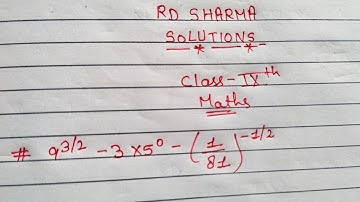 RD SHARMA
SOLUTIONS
Class-IXth
Maths
# 9^{3/2} - 3 × 5^0 - (1/81)^{-1/2}